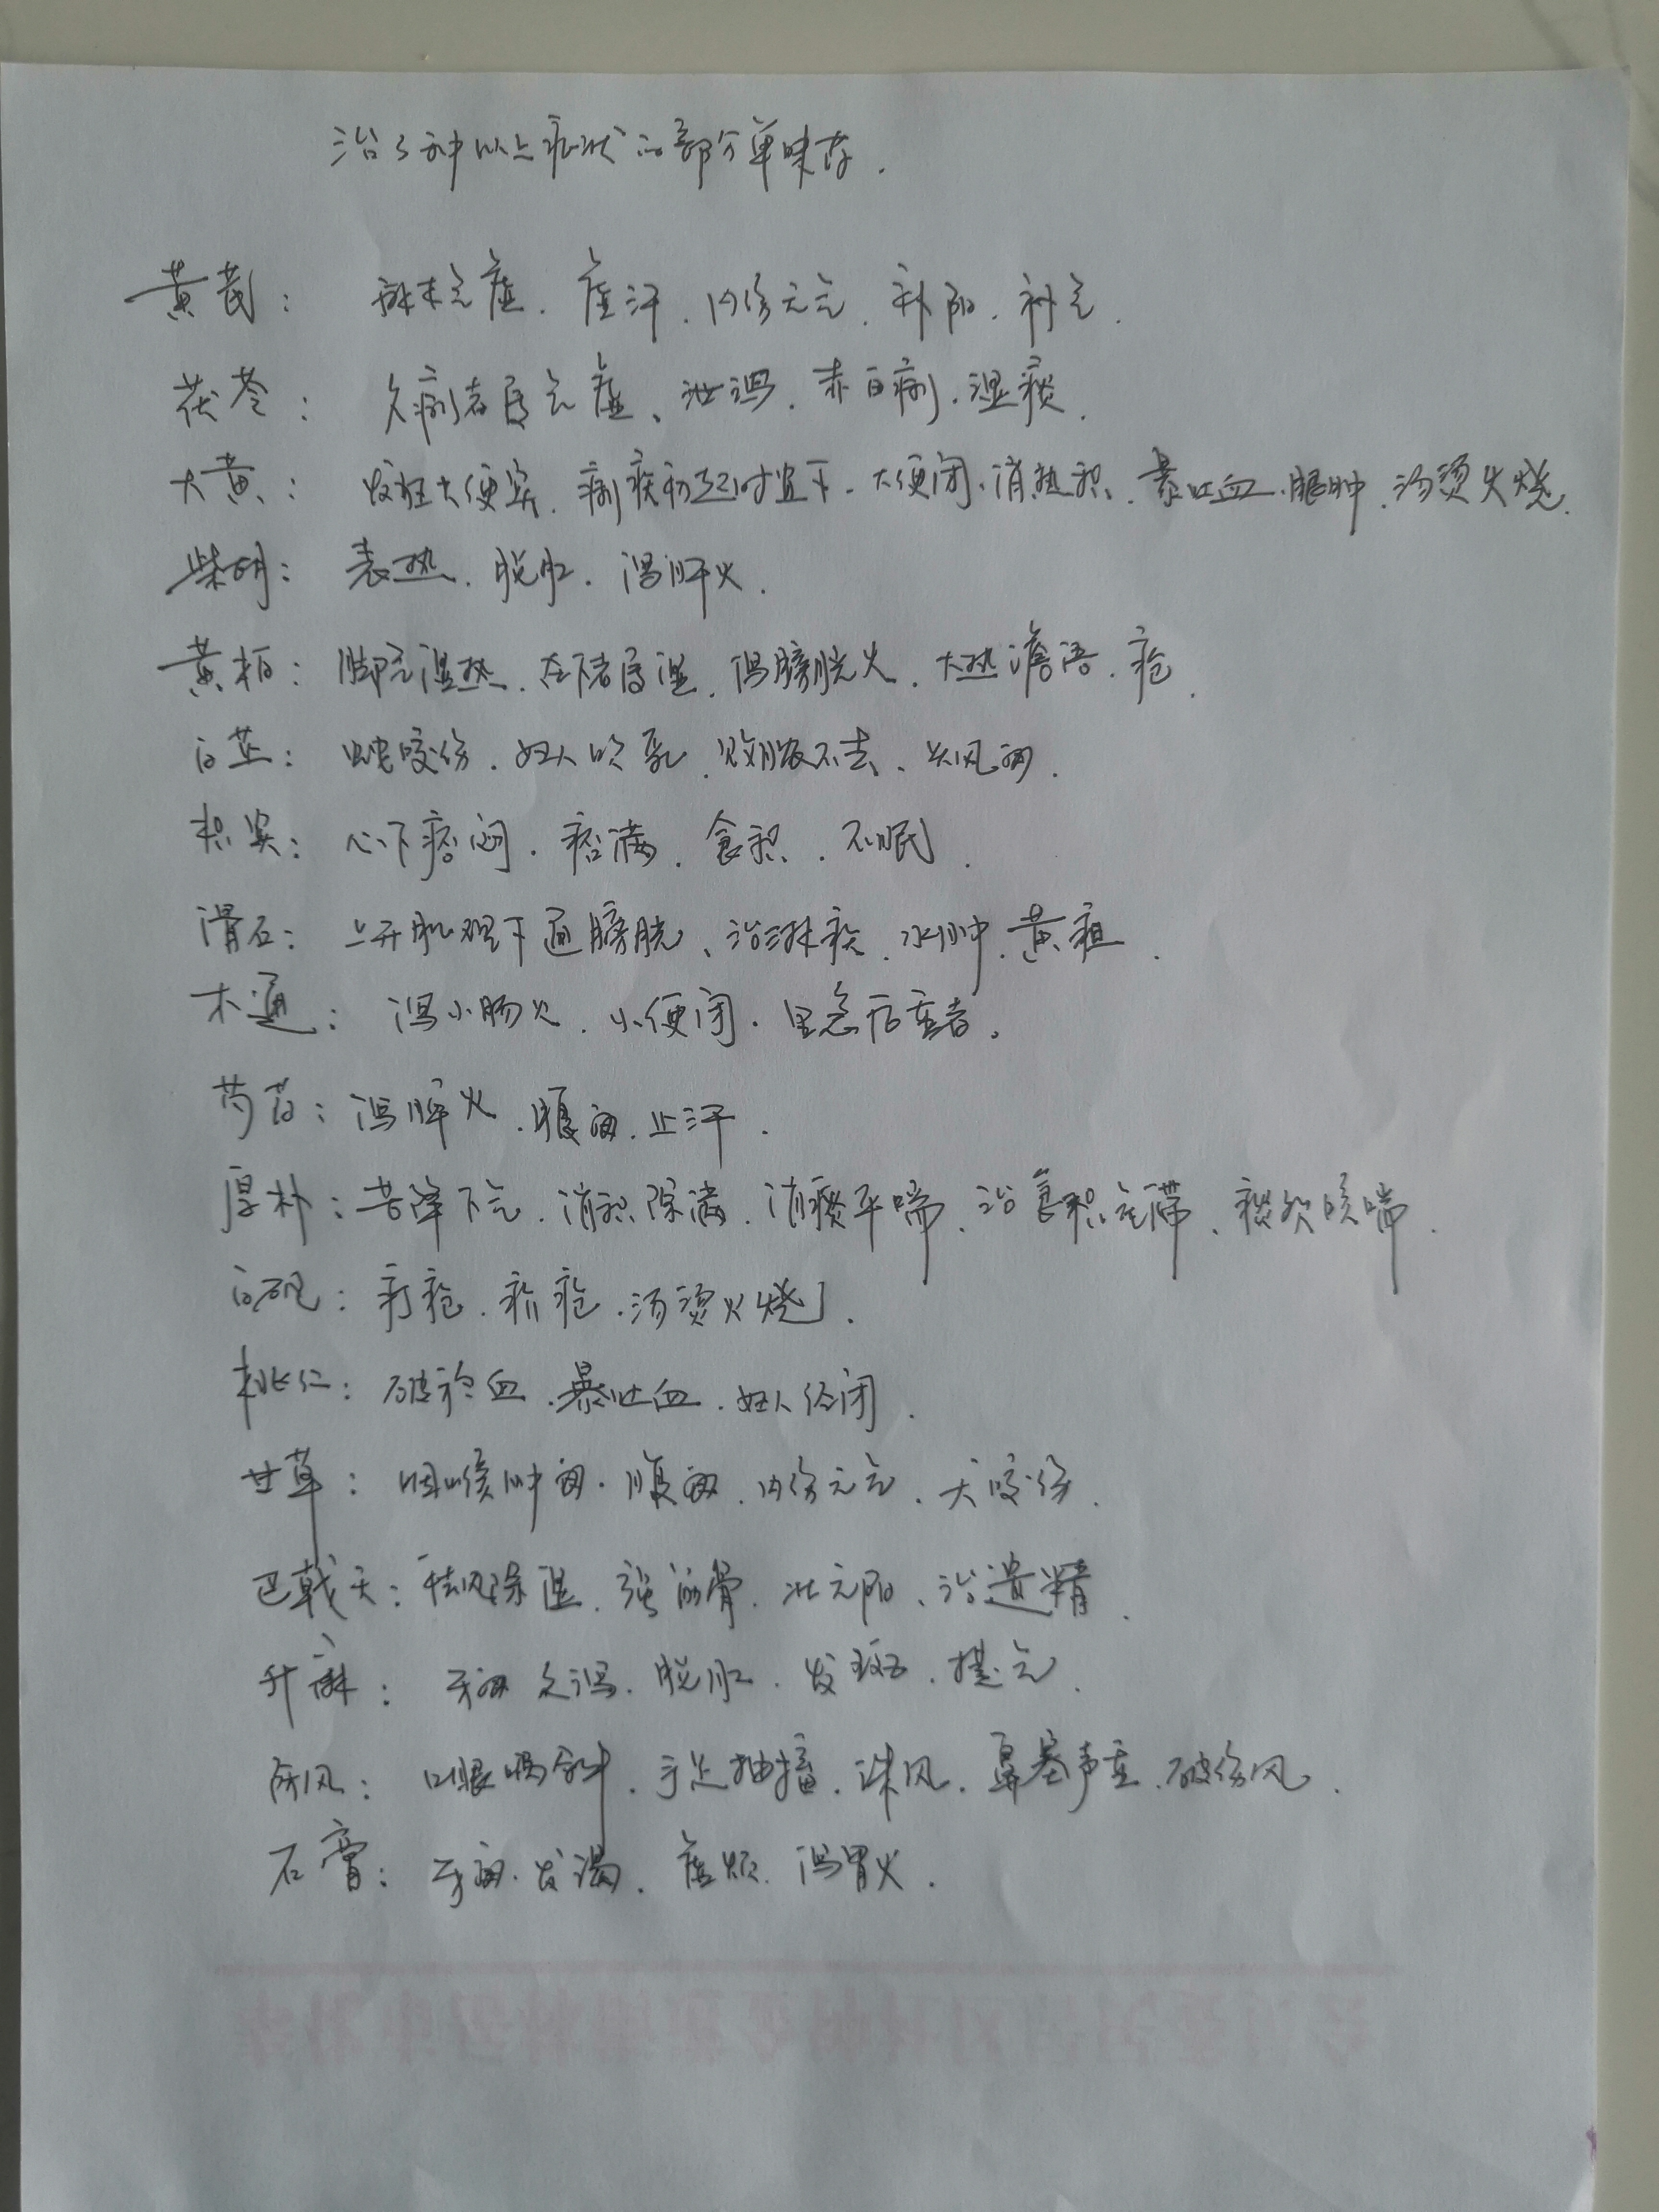 治3种以上症状的部分单味药.
黄芪: 麻木气虚. 虚汗. 内伤元气. 补阳. 补气.
茯苓: 久痢者属气虚、泄泻. 赤白痢. 湿痰.
大黄: 发狂大便实. 痢疾初起时宜下. 大便闭. 消热积. 暴吐血. 眼肿. 汤烫火烧.
柴胡: 表热. 脱肛. 泻肝火.
黄柏: 脚气湿热. 在下者属湿. 泻膀胱火. 大热谵语. 疮.
白芷: 蛇咬伤. 妇人吹乳. 败脓不去、头风痛.
枳实: 心下痞闷. 痞满. 食积. 不眠.
滑石: 上开肌理下通膀胱、治淋疾. 水肿. 黄疸.
木通: 泻小肠火. 小便闭. 里急后重者.
芍药: 泻脾火. 腹痛. 止汗.
厚朴: 苦降下气. 消积除满. 消痰平喘. 治食积气滞、痰饮咳喘.
白矾: 疔疮. 疥疮. 汤烫火烧.
桃仁: 破瘀血. 暴吐血. 妇人经闭.
甘草: 咽喉肿痛. 腹痛. 内伤元气. 犬咬伤.
巴戟天: 祛风除湿. 强筋骨. 壮元阳、治遗精.
升麻: 牙痛 久泻. 脱肛. 发斑. 提气.
防风: 口眼喎斜. 手足抽搐. 诸风. 鼻塞声重. 破伤风.
石膏: 牙痛. 发渴. 虚烦. 泻胃火.